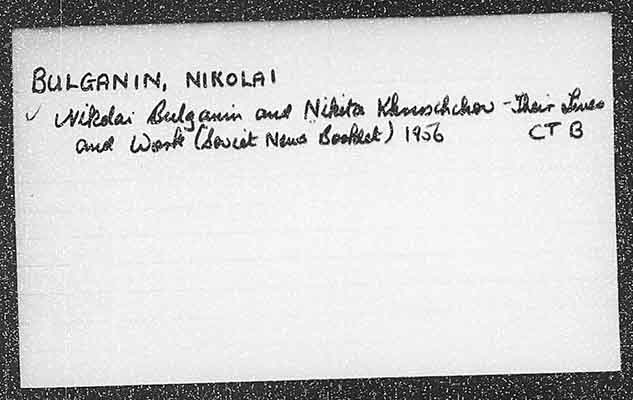 BULGANIN, NIKOLAI
✓ Nikolai Bulganin and Nikita Khruschchov - Their Lives
and Work (Soviet News Booklet) 1956 CT B